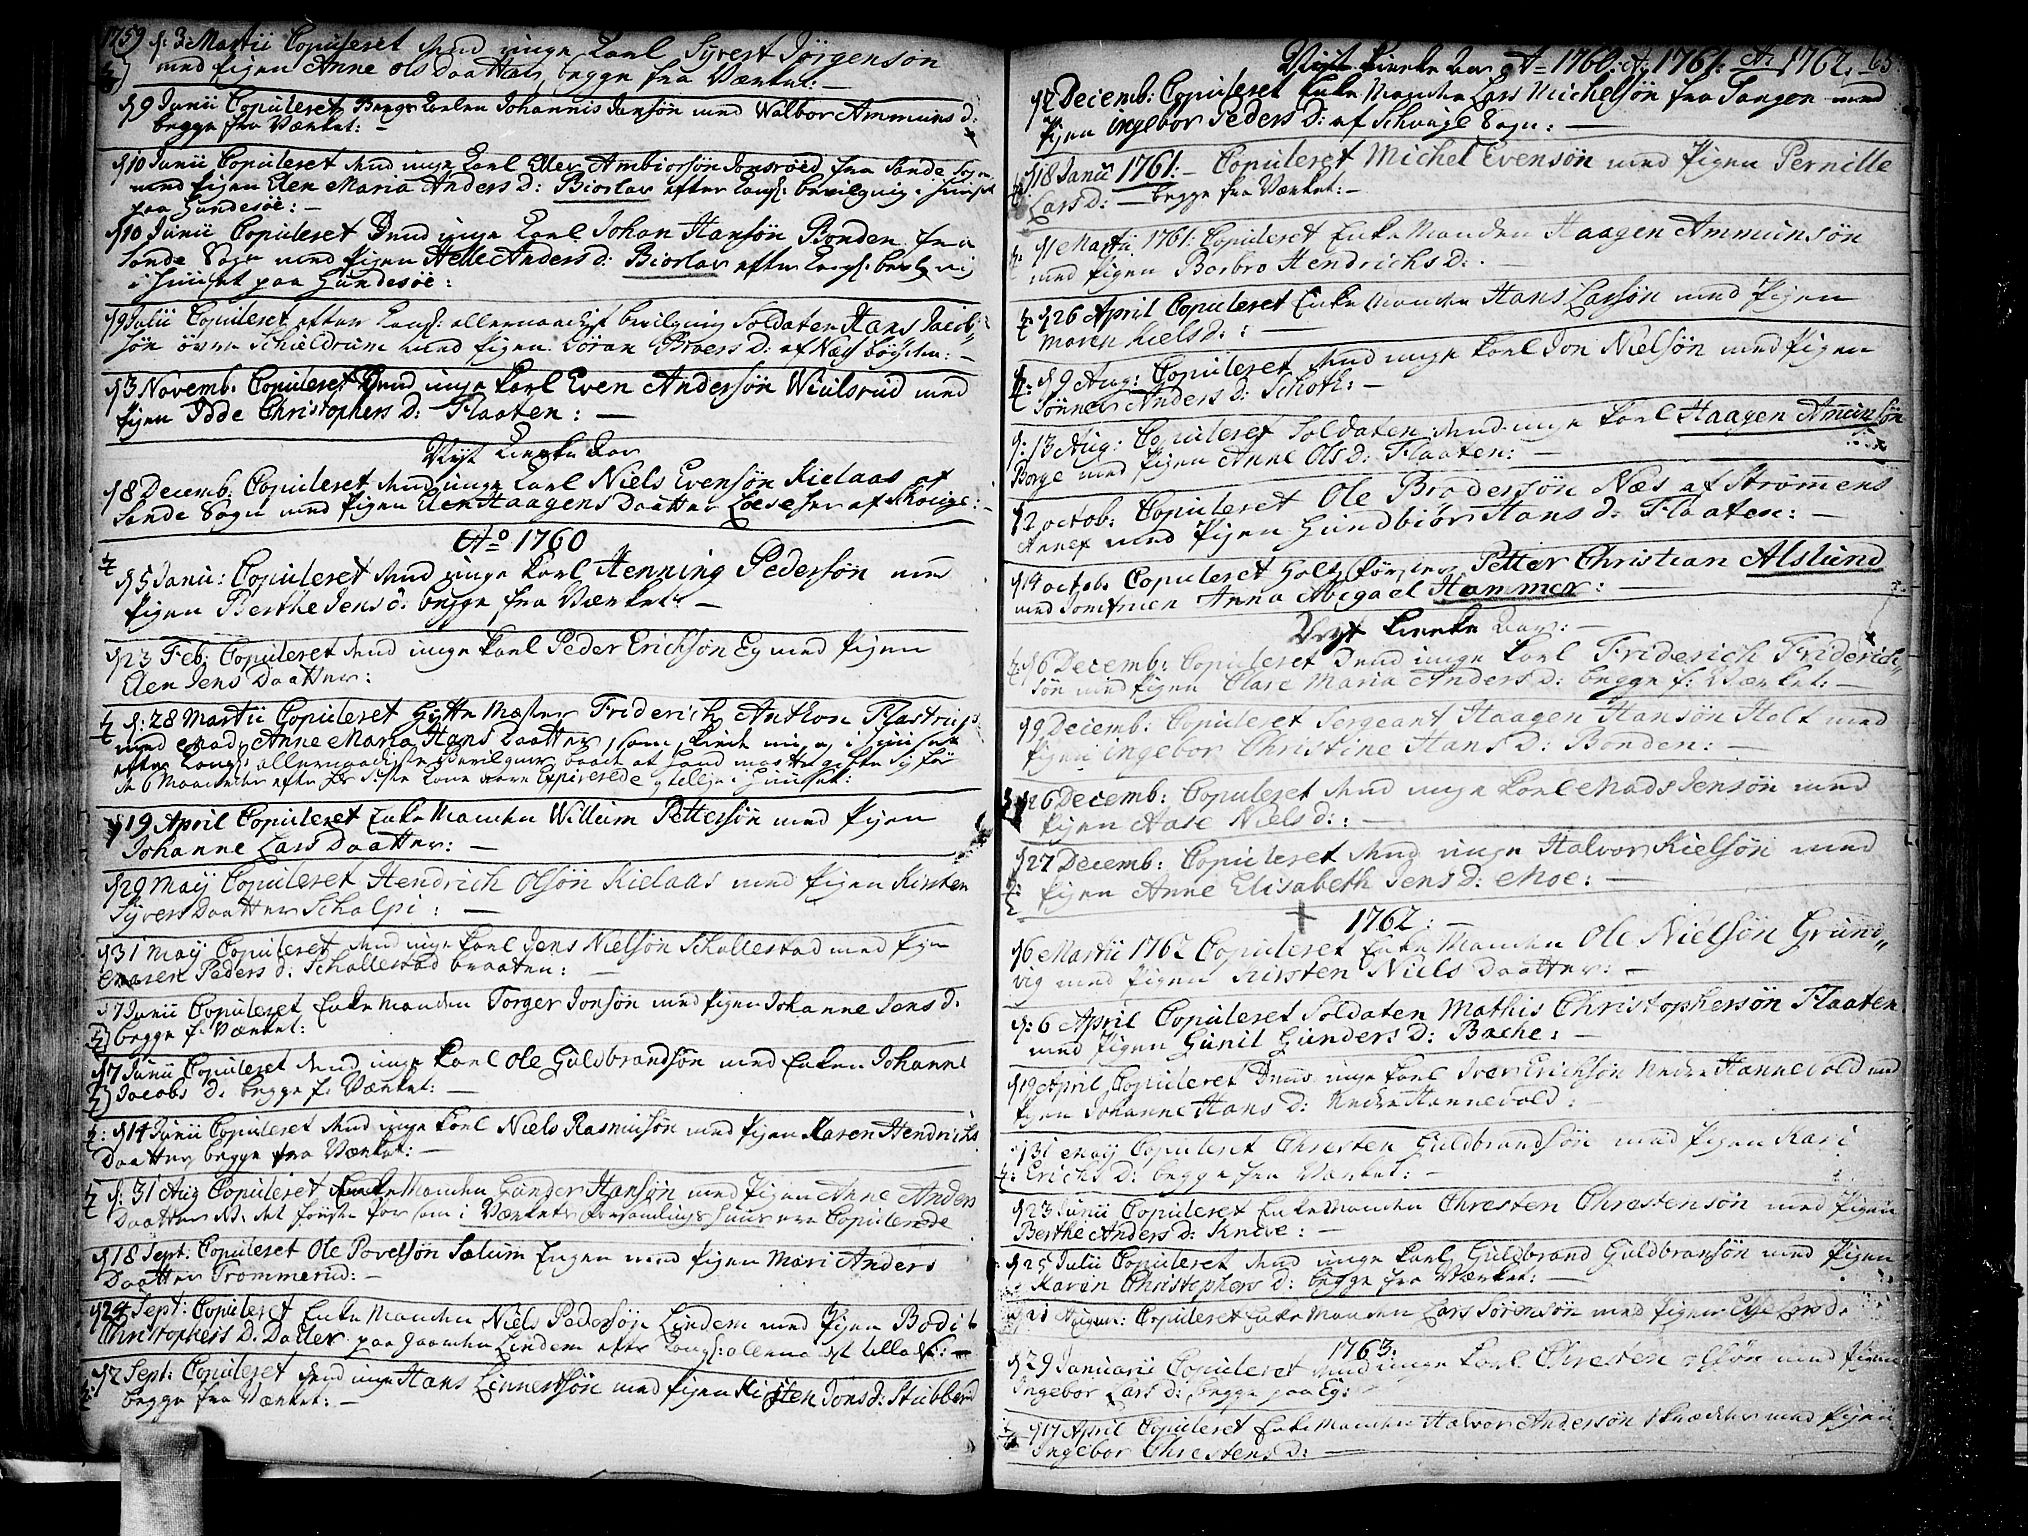 1759 d: 3 Martii Copuleret dend unge Karl Syvert Jörgensön
med Pigen Anne Ols Daatter, begge fra Værket: –
d 9 Junii Copuleret Berge Johannis Jansön med Walbor Ammuns d:
begge fra Værket: –
d 10 Junii Copuleret dend unge Karl Eller Ambiorsön Jonsröed fra Sande Sogn
med Pigen Elen Maria Anders d: Biorlav efter Kongl: bevilgnig i Huuset
paa Gundesöe: –
d 10 Junii Copuleret Dend unge Karl Johan Hansön Bonden fra
Sande Sogn med Pigen Helle Anders d: Biorlav efter Kongl: bevilgnig
i Huuset paa Gundesöe:
d 9 Julii Copuleret efter Kongl: allernaadigst bevilgnig Soldaten Hans Jacob-
sön övre Schieldrum med Pigen Söran Broers d: af
d 3 Novemb: Copuleret Dend unge Karl Even Andersön Wiulsrud med
Pigen Idde Christophers d: Flaaten: –
Nyt Kierke Aar
d 8 Decemb: Copuleret dend unge Karl Niels Evensön Kielaas af
Sande Sogn med Pigen Elen Haagens Daatter af Skouge: –
Ao 1760
d 5 Janu: Copuleret dend unge Karl Henning Pedersön med
Pigen Berthe Jens d: begge fra Værket: –
d 23 Feb: Copuleret dend unge Karl Peder Erichsön Eg med Pigen
Elen Jens Daatter:
d: 28 Martii Copuleret Hytte Mæster Friderich Anthon Flastrup
med Mad: Anne Maria Hans Daatter, som skeede i Huuset
efter Kongl: allernaadigste bevilgning baade at Hand maatte gifte sig för
de 6 Maaneder efter sidste Kone vare Expirerede og tillige i Huuset:
d 19 April Copuleret Enke Manden Willum Pettersön med Pigen
Johanne Lars Daatter: –
d 29 Maij Copuleret Hendrich Olsön Kielaas med Pigen Kirsten
Syvers Daatter Schalpi: –
d 31 Maij Copuleret dend unge Karl Jens Nielsön Schallestad med Pigen
Maren Peders d: Schallestad braaten: –
d 7 Junii Copuleret Enke Manden Torger Jonsön med Pigen Johanne Jens d:
begge f: Værket:
d 7 Junii Copuleret dend unge Karl Ole Guldbrandsön med Enken Johanne
Jacobs d: begge f: Værket: –
d 14 Junii Copuleret dend unge Karl Niels Rasmusön med Pigen Karen Hendrichs
Daatter begge fra Værket: –
d: 31 Aug Copuleret Enke Manden Gunder Hansön med Pigen Anne Anders
Daatter de förste Par som i Værkets Forsamlings Huus ere Copulerede
d 18 Sept: Copuleret Ole Povelsön Sælum Engen med Pigen Mari Anders
Daatter Trommerud: –
d 24 Sept: Copuleret Enke Manden Niels Pedersön Lindem med Pigen Bodil
Christophers D: Datter paa Gaarden Lindem efter Kongl: tilladelse: –
d 2 Sept: Copuleret dend unge Hans Linnertsön med Pigen Kirsten Jons d: Stubberud
begge fra Værket: –
Nyt Kierke Aar Ao 1760. Ao 1761. Ao 1762. 65
d 2 Decemb: Copuleret Enke Manden Lars Michelsön fra Tangen med
Pigen Ingebor Peders d: af Schouge Sogn: –
d 18 Janu 1761. – Copuleret Michel Evensön med Pigen Pernille
Lars d: – begge fra Værket: –
d 1 Martii 1761: Copuleret Enke Manden Haagen Ammunsön
med Pigen Barbro Hendrichs d: .
d 26 April Copuleret Enke Manden Hans Larsön med Pigen
Maren Kiels d: : –
d 9 Aug: Copuleret dend unge Karl Jon Nielsön med Pigen
Sönnev Anders d: Schoth: –
d: 13 Aug: Copuleret Soldaten dend unge Karl Haagen Amunsön
Borge med Pigen Anne Ols d: Flaaten: –
d 2 Octob: Copuleret Ole Brodersön Næs af Strömens
Annex med Pigen Gundbiör Hans d: Flaaten: –
d 14 Octob: Copuleret Holtz Förster Petter Christian Alslund
med Jomfruen Anna Abigael Hammer: –
Nyt Kierke Aar: –
d 6 Decemb: Copuleret Dend unge Karl Friderich Friderich-
sön med Pigen Clare Maria Anders d: begge f: Værket: –
d 9 Decemb: Copuleret Sergeant Haagen Hansön Holt med
Pigen Ingebor Christine Hans d: Bonden: –
d 26 Decemb: Copuleret dend unge Karl Mads Jensön med
Pigen Aase Niels d: : –
d 27 Decemb: Copuleret dend unge Halvor Kielsön med
Pigen Anne Elisabeth Jens d: Moe: –
1762: –
d 6 Martii 1762 Copuleret Enke Manden Ole Nielsön Grund-
vig med Pigen Kirsten Niels Daatter: –
d: 6 April Copuleret Soldaten Mathis Christophersön Flaaten
med Pigen Gunil Gunders d: Bache: –
d 19 April Copuleret Dend unge Karl Iver Erichsön Nedre Hannevold med
Pigen Johanne Hans d: Nedre Hannevold: –
d 31 Maij Copuleret Chresten Guldbrandsön med Pigen Kari
Erichs d: begge fra Værket: –
d 23 Junii Copuleret Enke Manden Chresten Chrestensön med Pigen
Berthe Anders d: Knive: –
d 25 Julii Copuleret dend unge Karl Guldbrand Guldbransön med Pigen
Karen Christophers d: begge fra Værket: –
Copuleret Enke Manden Lars Sörensön med Pigen Lars d.
1763:
d 29 Januarii Copuleret dend unge Karl Chresten Olsön med Pigen
Ingebor Lars d: begge paa Eg: –
d 17 April Copuleret Enke Manden Halvor Andersön med Pigen
Ingebor Chrestens d: –